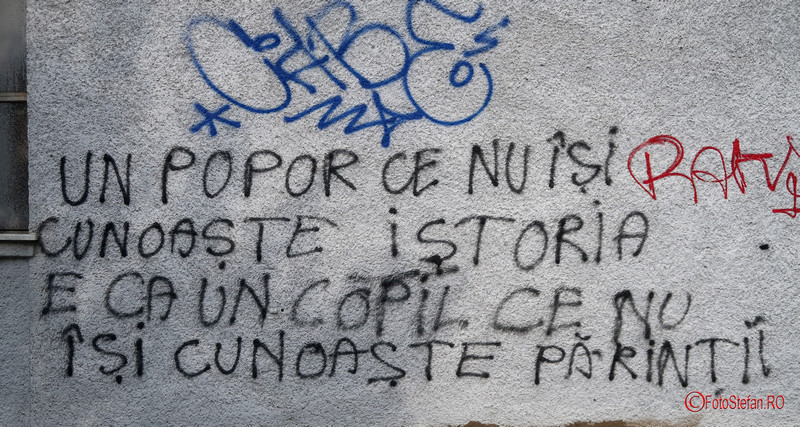 UN POPOR CE NU ÎȘI
CUNOAȘTE IȘTORIA
E CA UN COPIL CE NU
ÎȘI CUNOAȘTE PĂRINȚII
©FotoStefan.RO